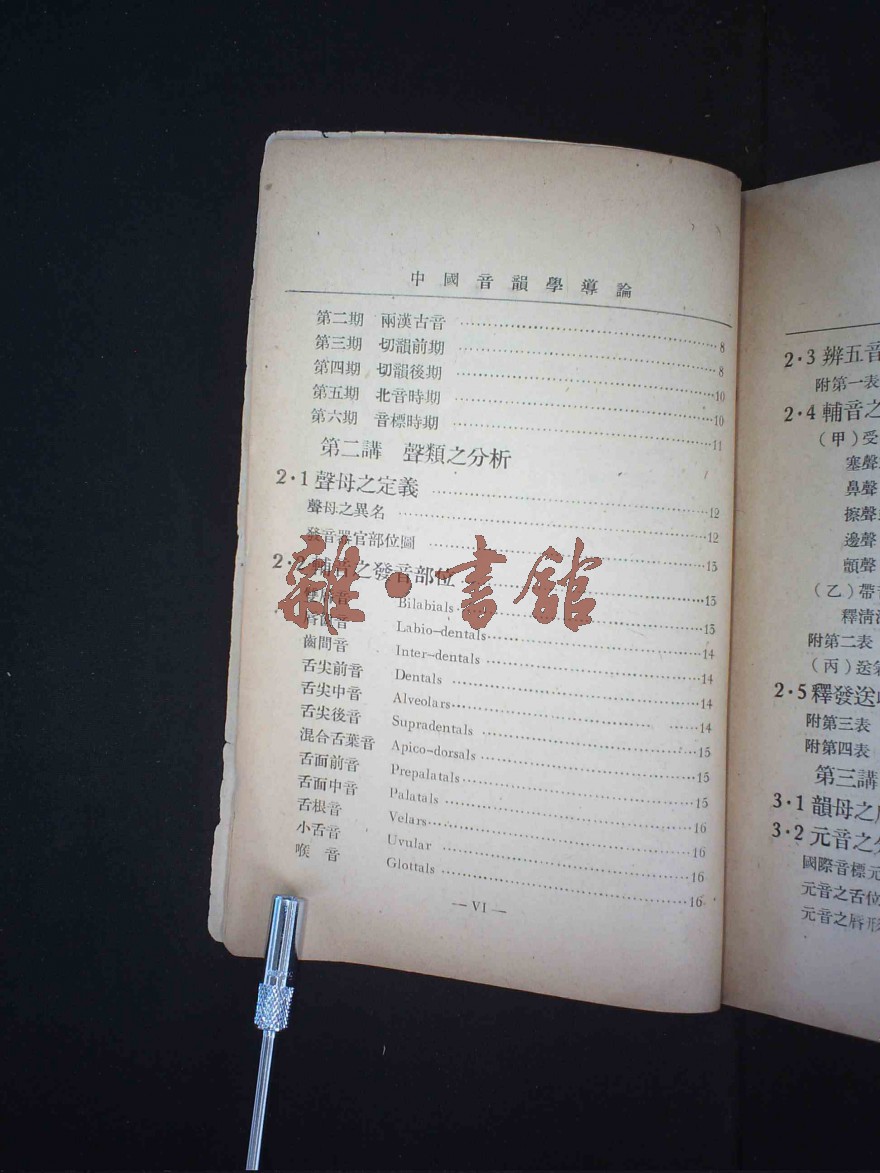 中國音韻學導論
第二期 兩漢古音 ……8
第三期 切韻前期 ……8
第四期 切韻後期 ……10
第五期 北音時期 ……10
第六期 音標時期 ……11
第二講 聲類之分析
2·1 聲母之定義 ……12
聲母之異名 ……12
發音器官部位圖 ……13
2·2 輔音之發音部位 ……13
雙唇音 Bilabials ……13
唇齒音 Labio-dentals ……14
齒間音 Inter-dentals ……14
舌尖前音 Dentals ……14
舌尖中音 Alveolars ……14
舌尖後音 Supradentals ……15
混合舌葉音 Apico-dorsals ……15
舌面前音 Prepalatals ……15
舌面中音 Palatals ……16
舌根音 Velars ……16
小舌音 Uvular ……16
喉音 Glottals ……16
— VI —
雜·書館
2·3 辨五音
附第一表
2·4 輔音之
(甲)受
塞聲
鼻聲
擦聲
邊聲
顫聲
(乙)帶音
釋清濁
附第二表
(丙)送氣
2·5 釋發送收
附第三表
附第四表
第三講
3·1 韻母之
3·2 元音之
國際音標元
元音之舌位
元音之唇形